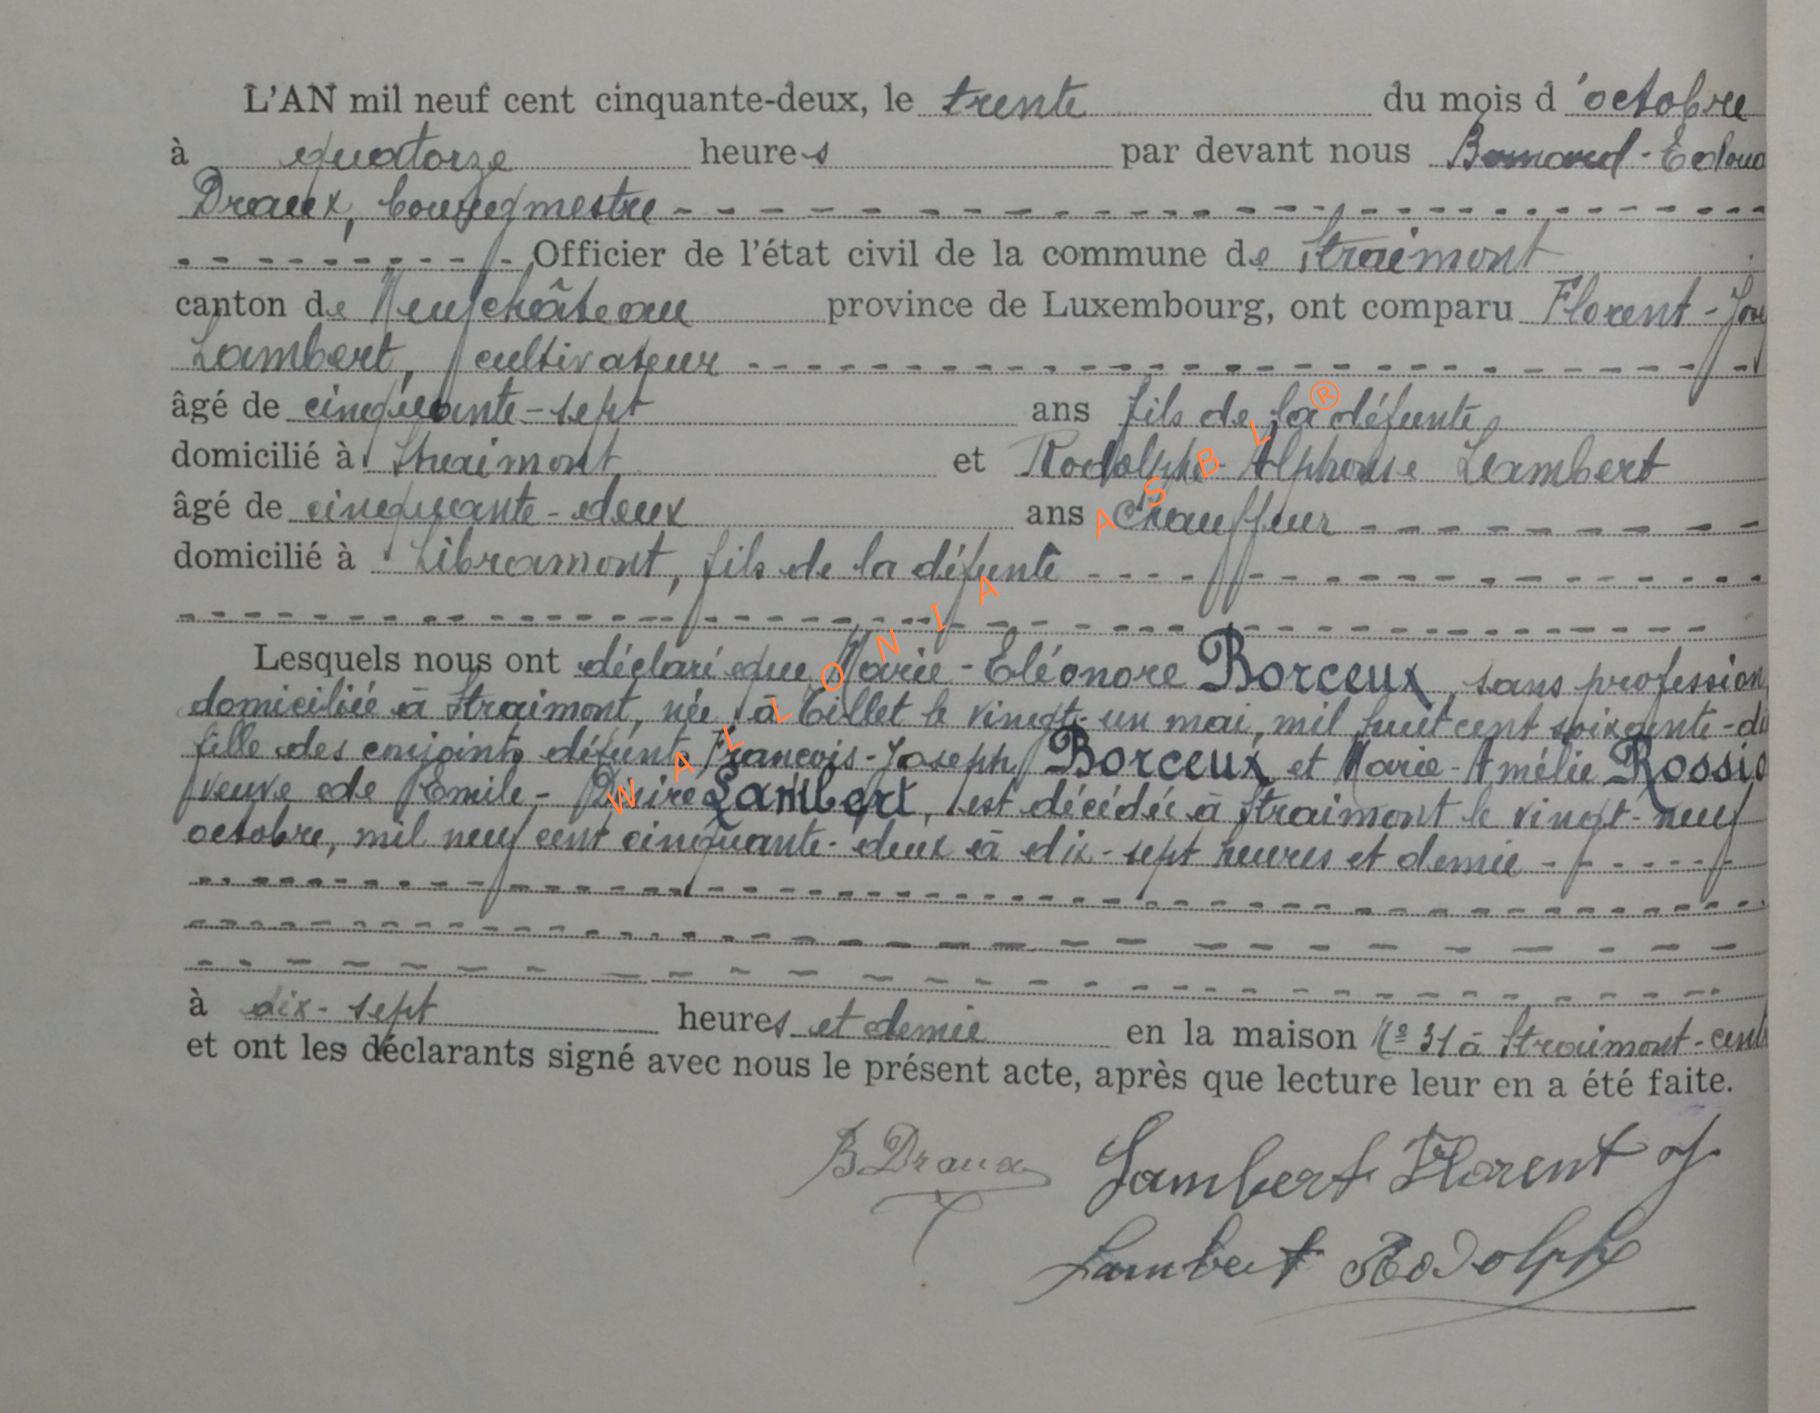 L'AN mil neuf cent cinquante-deux, le trente du mois d'octobre
à quatorze heures par devant nous Bernard-Edoua
Draux, bourgmestre
Officier de l'état civil de la commune de Straimont
canton de Neufchâteau province de Luxembourg, ont comparu Florent-Jose
Lambert, cultivateur
âgé de cinquante-sept ans fils de la défunte,
domicilié à Straimont et Rodolphe-Alphonse Lambert
âgé de cinquante-deux ans chauffeur
domicilié à Libramont, fils de la défunte
Lesquels nous ont déclaré que Marie-Eléonore Borceux, sans profession,
domiciliée à Straimont, née à Tillet le vingt-un mai, mil huit cent soixante-di
fille des conjoints défunts François-Joseph Borceux et Marie-Amélie Rossio
veuve de Emile-Désiré Lambert, est décédée à Straimont le vingt-neuf
octobre, mil neuf cent cinquante-deux à dix-sept heures et demie
à dix-sept heures et demie en la maison N° 31 à Straimont-cent
et ont les déclarants signé avec nous le présent acte, après que lecture leur en a été faite.
B Draux Lambert Florent J
Lambert Rodolphe
WALLONIA ASBL ®